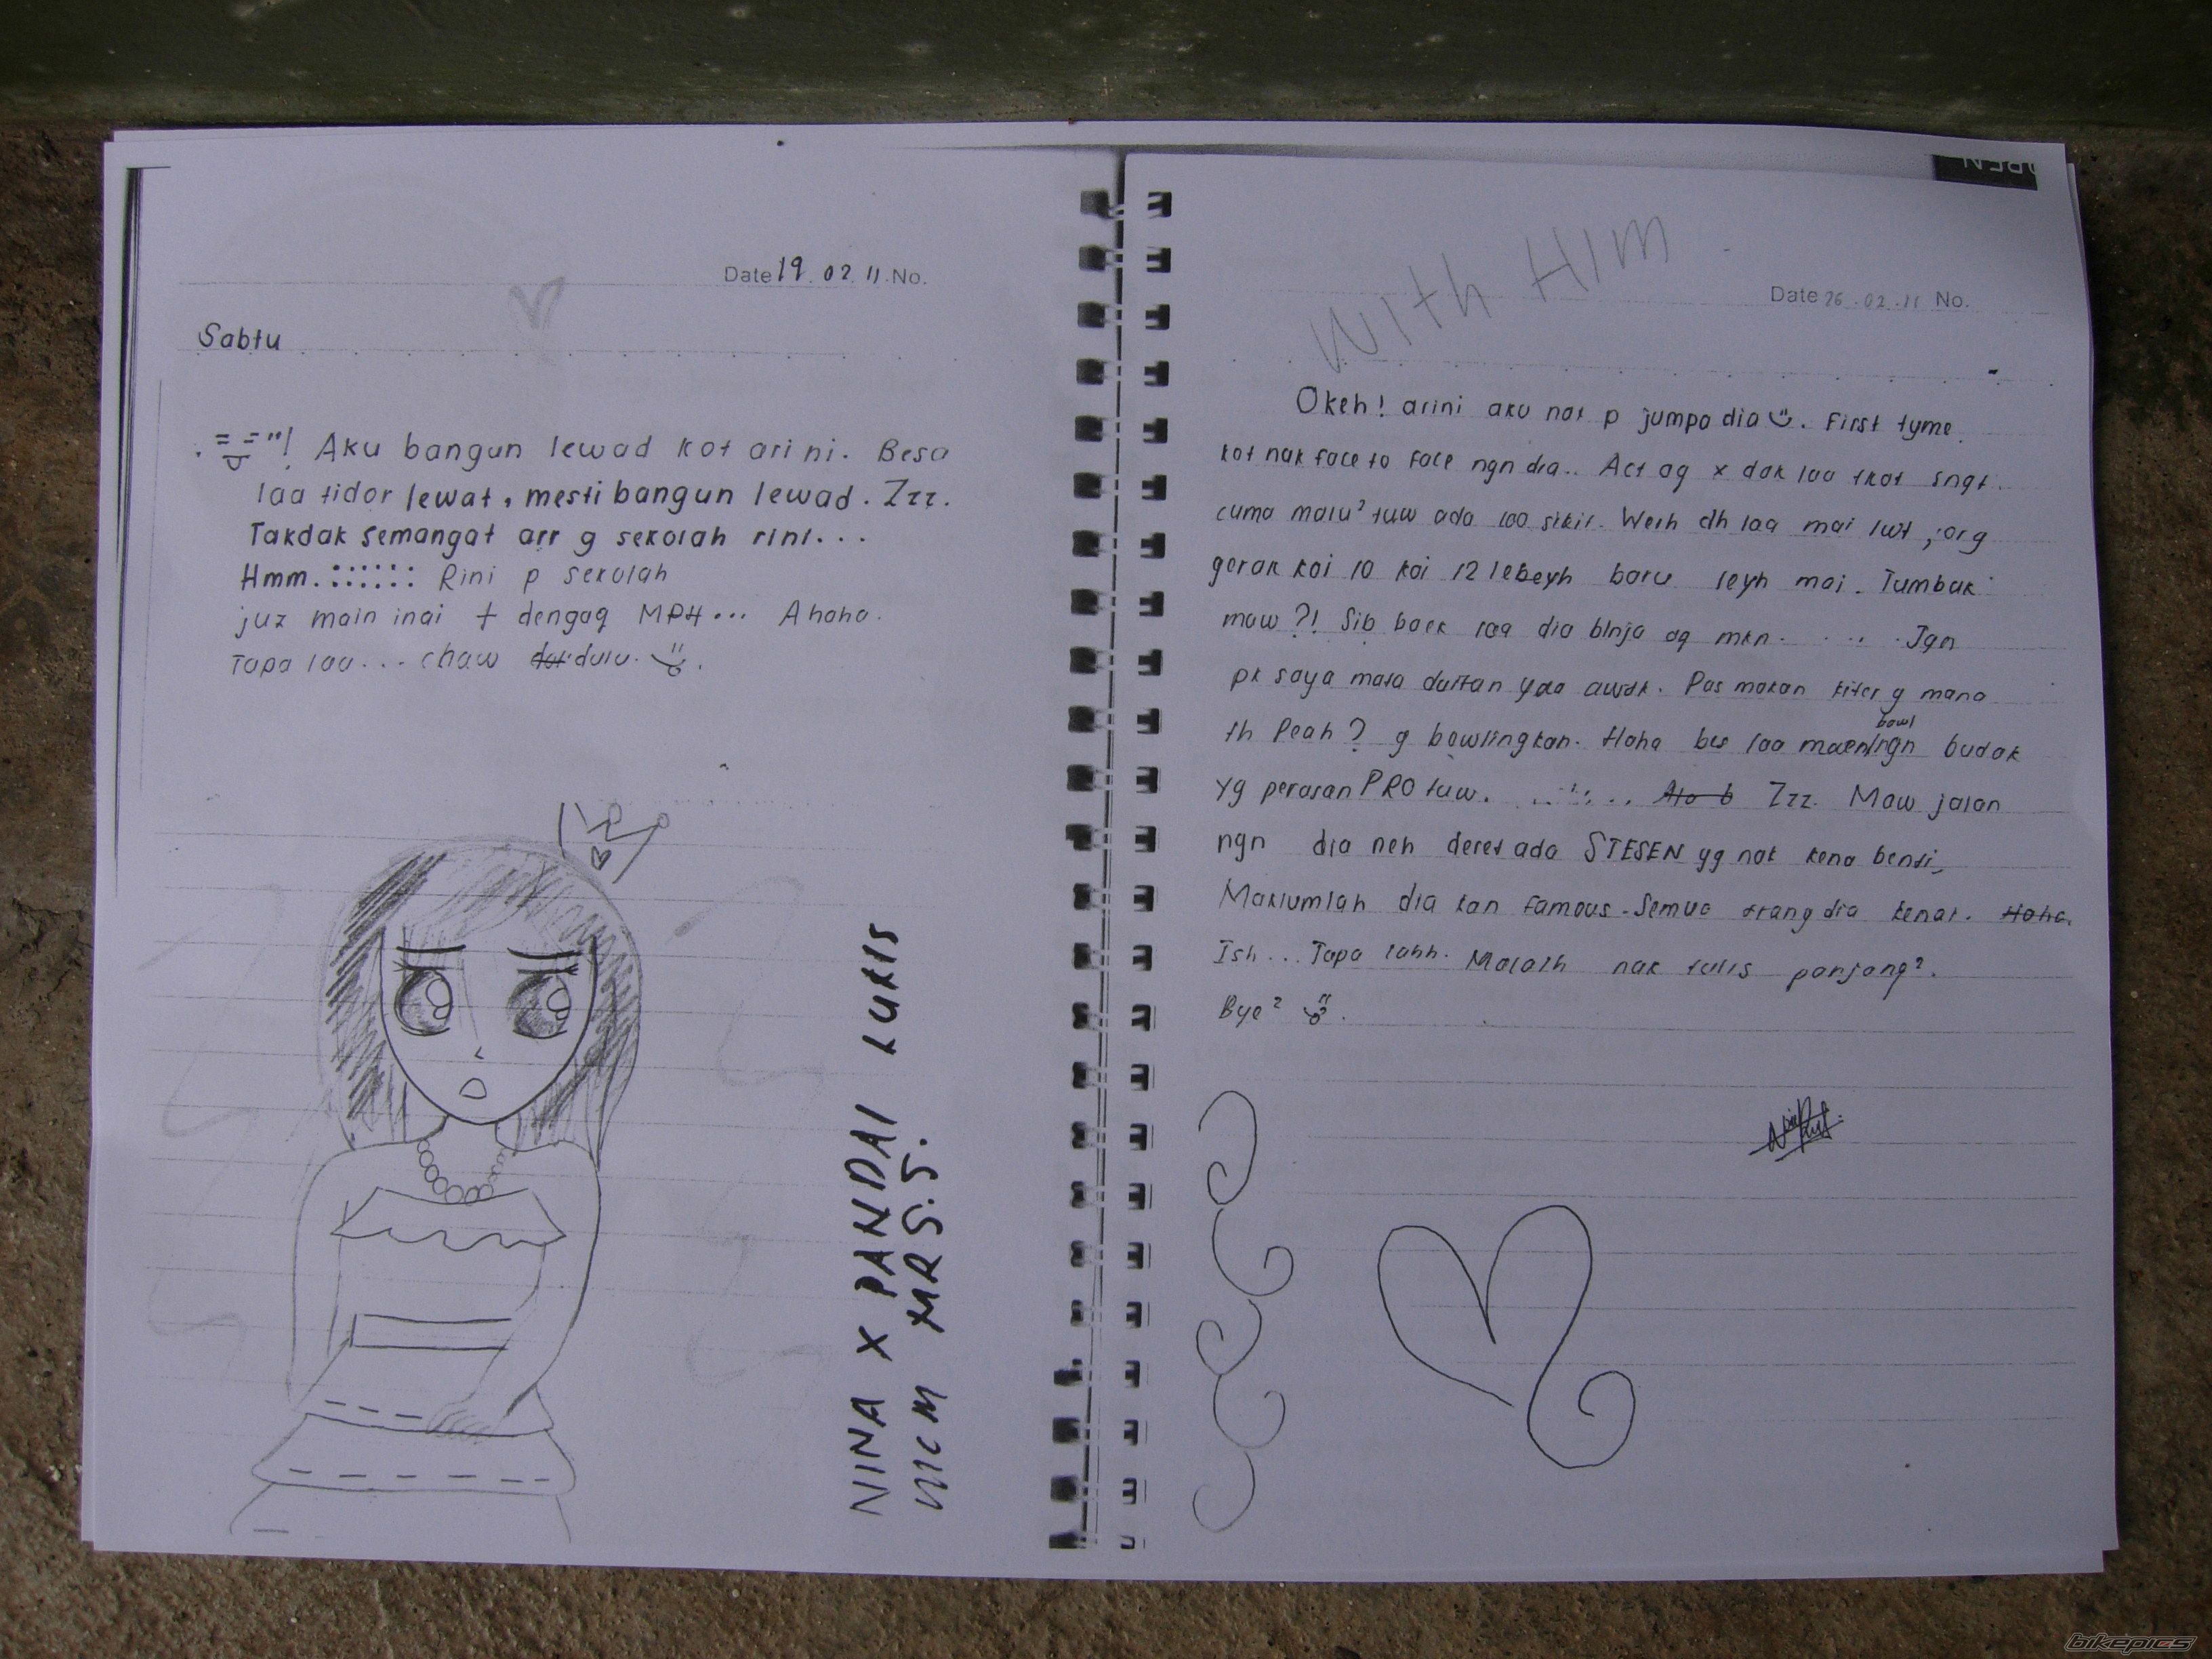 Date 19. 02. 11. No.
Sabtu
Aku bangun lewad kot ari ni. Besa
laa tidor lewat, mesti bangun lewad. Zzz.
Takdak semangat arr g sekolah rini...
Hmm. :::::: Rini p sekolah
juz main inai + dengaq MPH... Ahaha.
Tapa laa... chaw dulu.
NINA X PANDAI LUKIS
MCM MRS.S.
With Him
Date 26.02.11 No.
Okeh! arini aku nak p jumpa dia. First tyme
kot nak face to face ngn dia.. Act aq x dak laa tkot sngt
cuma malu² tuw ada laa sikit. Weih dh laa mai lwt, org
gerak koi 10 koi 12 lebeyh baru leyh mai. Tumbuk
maw?! Sib baek laa dia blnja aq mkn. ... Jgn
pk saya mata duitan yaa awak. Pas makan kiter g mana
th Peah? g bowlingkan. Haha bes laa maen bowl ngn budak
yg perasan PRO tuw. ...... Zzz. Maw jalan
ngn dia neh deret ada STESEN yg nak kena benti,
Maklumlah dia kan famous. Semua orang dia kenal. Haha.
Ish... Tapa lahh. Malaih nak tulis panjang².
Bye²
bikepics